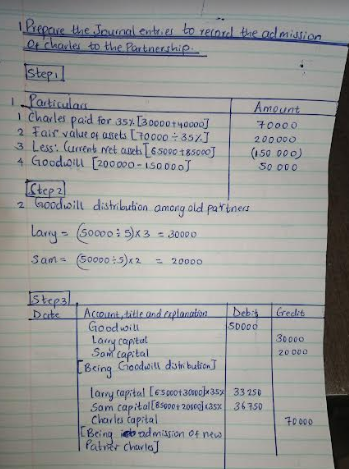 1 Prepare the Journal entries to record the admission
of charles to the Partnership.
Step1
1 Particulars Amount
1 Charles paid for 35% [30000+40000] 70000
2 Fair value of assets [70000 ÷ 35%] 200000
3 Less: Current net assets [65000+85000] (150 000)
4 Goodwill [200000-150000] 50 000
Step 2
2 Goodwill distribution among old partners
Larry = (50000÷5)x3 = 30000
Sam = (50000÷5)x2 = 20000
Step3
Date Account, title and explanation Debit Credit
Goodwill 50000
Larry capital 30000
Sam capital 20 000
[Being Goodwill distribution]
Larry capital [65000+30000]x35% 33 250
Sam capital [85000+20000]x35% 36750
Charles Capital 70 000
[Being admission of new
Patner Charles]